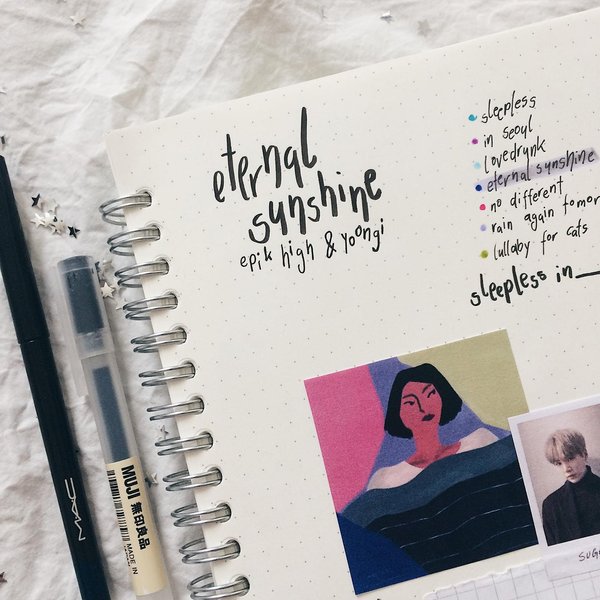 eternal
sunshine
epik high & yoongi
sleepless
in seoul
lovedrunk
eternal sunshine
no different
rain again tomor
lullaby for cats
sleepless in
MAC
MUJI 無印良品
MADE IN